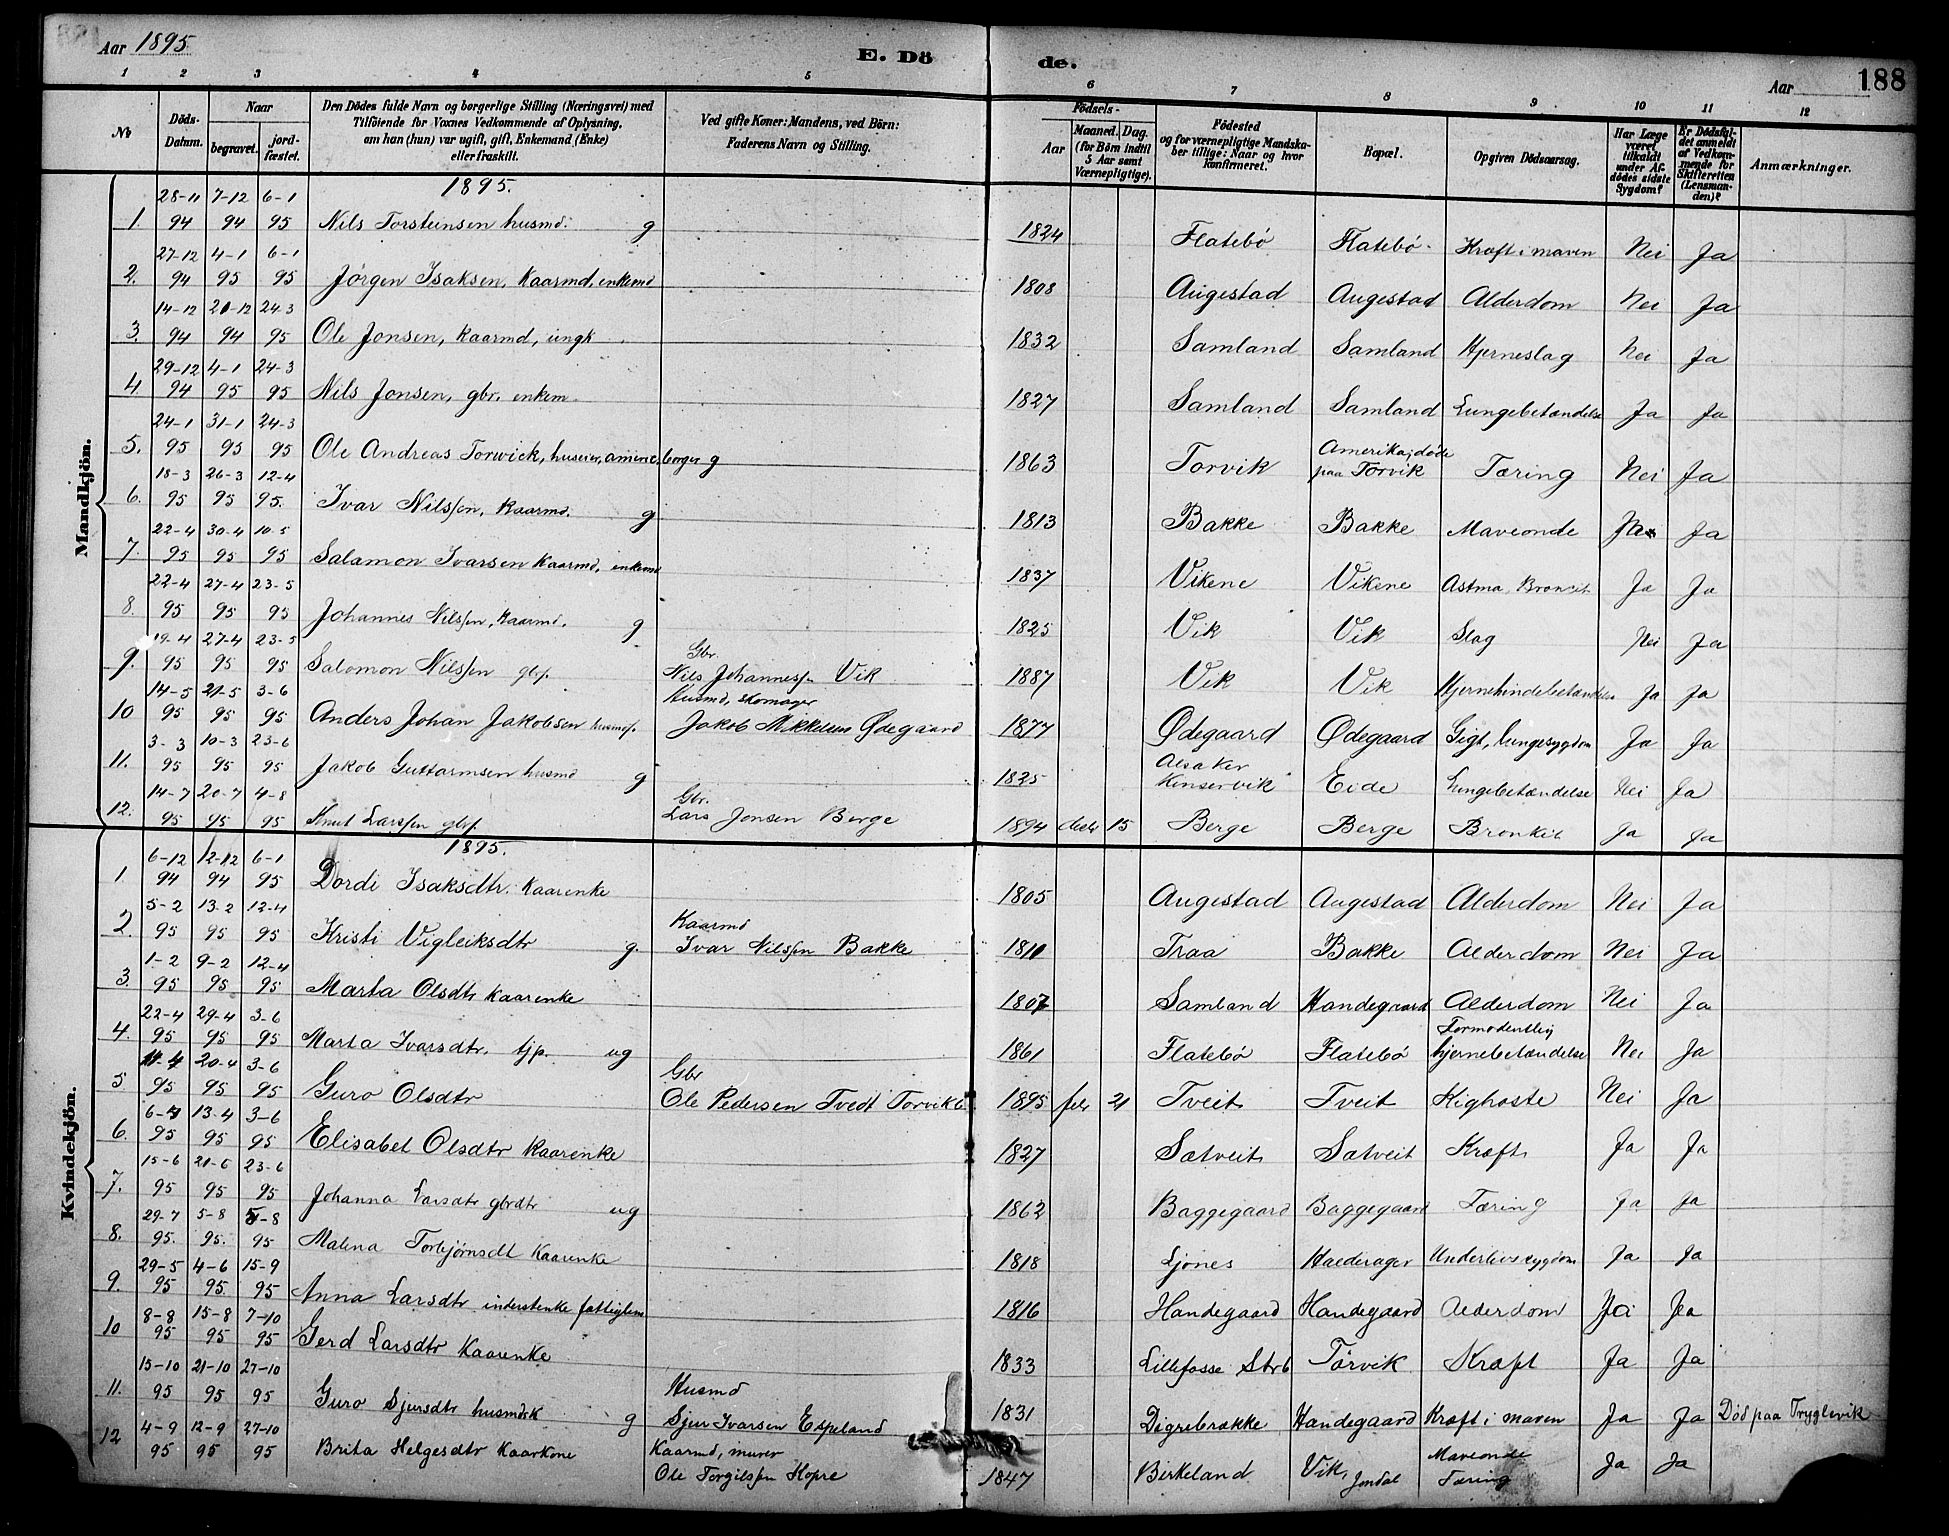 Aar 1895
E. Dö de.
Aar 188
1 2 3 4 5 6 7 8 9 10 11 12
No
Döds-Datum.
Naar begravet. jord-fæstet.
Den Dödes fulde Navn og borgerlige Stilling (Næringsvei) med Tilföiende for Voxnes Vedkommende af Oplysning, om han (hun) var ugift, gift, Enkemand (Enke) eller fraskilt.
Ved gifte Koner: Mandens, ved Börn: Faderens Navn og Stilling.
Födsels- Aar Maaned. Dag. (for Börn indtil 5 Aar samt Værnepligtige).
Födested og for værnepligtige Mandskaber tillige: Naar og hvor konfirmeret.
Bopæl.
Opgiven Dödsaarsag.
Har Læge været tilkaldt under Afdödes sidste Sygdom?
Er Dödsfaldet anmeldt af Vedkommende for Skifteretten (Lensmanden)?
Anmærkninger.
Mandkjön.
1895.
1. 28-11 94 7-12 94 6-1 95 Nils Torsteinsen husmd. g 1824 Flatebø Flatebø Kræft i maven Nei Ja
2. 27-12 94 4-1 95 6-1 95 Jörgen Isaksen, Kaarmd, enkemd 1808 Augestad Augestad Alderdom Nei Ja
3. 14-12 94 21-12 94 24-3 95 Ole Jonsen, Kaarmd, ungk 1832 Samland Samland Hjerneslag Nei Ja
4. 29-12 94 4-1 95 24-3 95 Nils Jonsen, gbr, enkem. 1827 Samland Samland Lungebetændelse Ja Ja
5. 24-1 95 31-1 95 24-3 95 Ole Andreas Torwick, huseier, amerik. borger g 1863 Torvik Amerika; døde paa Torvik Tæring Nei Ja
6. 18-3 95 26-3 95 12-4 95. Ivar Nilssen, Kaarmd. g 1813 Bakke Bakke Maveonde Ja
7. 22-4 95 30-4 95 10-5 95 Salamon Ivarsen Kaarmd, enkemd 1837 Vikene Vikene Astma Bronkit Ja Ja
8. 22-4 95 27-4 95 23-5 95 Johannes Nilssen, Kaarmd. g 1825 Vik Vik Slag Nei Ja
9. 19-4 95 27-4 95 23-5 95 Salomon Nilssen gbs. Gbr. Nils Johanness Vik 1887 Vik Vik Hjernehindebetændelse Ja Ja
10 14-5 95 21-5 95 3-6 95 Anders Johan Jakobsen husmds. Husmd, skomager Jakob Mikkelsen Ødegaard 1877 Ødegaard Ødegaard Gigt, lungesygdom Ja Ja
11. 3-3 95 10-3 95 23-6 95 Jakob Guttormsen husmd g 1825 Alsaker Kinservik Eide Lungebetændelse Nei Ja
12. 14-7 95 20-7 95 4-8 95 Knut Larssen gbs. Gbr. Lars Jonsen Berge 1894 decbr 15 Berge Berge Bronkit Ja Ja
Kvindekjön.
1895.
1. 6-12 94 12-12 94 6-1 95 Dordi Isaksdtr. Kaarenke 1805 Augestad Augestad Alderdom Nei Ja
2. 5-2 95 13-2 95 12-4 95 Kristi Vigleiksdtr g. Kaarmd Ivar Nilssen Bakke 1810 Traa Bakke Alderdom Nei Ja
3. 1-2 95 9-2 95 12-4 95 Marta Olsdtr Kaarenke 1807 Samland Handegaard Alderdom Nei Ja
4. 22-4 95 29-4 95 3-6 95 Marta Ivarsdtr. tjp. ug 1861 Flatebø Flatebø Formodentlig hjernebetændelse Nei Ja
5. 11-4 95 20-4 95 3-6 95 Guro Olsdtr Gbr Ole Pedersen Tvedt Torvikb 1895 febr 21 Tveit Tveit Kighoste Nei Ja
6. 6-4 95 13-4 95 3-6 95 Elisabet Olsdtr Kaarenke 1827 Satveit Satveit Kræft Ja Ja
7. 15-6 95 21-6 95 23-6 95 Johanna Larsdtr gbrdtr ug 1862 Baggegaard Baggegaard Tæring Ja Ja
8. 29-7 95. 5-8 95. 5-8 95 Malena Torbjørnsdt Kaarenke 1818 Ljones Halderager Underlivssygdom Ja Ja
9. 29-5 95 4-6 95 15-9 95 Anna Larsdtr inderstenke fattiglem 1816 Handegaard Handegaard Alderdom Ja
10 8-8 95 15-8 95 7-10 95 Gerd Larsdtr Kaarenke 1833 Lillefosse Strb Torvik Kræft Ja Ja
11. 15-10 95 21-10 95 27-10 95 Guro Sjursdtr husmdsk g Husmd Sjur Ivarsen Espeland 1831 Digrebrække Handegaard Kræft i maven Ja Ja Død paa Tryglevik
12 4-9 95 12-9 95 27-10 95 Brita Helgesdtr Kaarkone Kaarmd, murer Ole Torgilssen Kopre 1847 Birkeland Vik, Jondal Maveonde Tæring Ja Ja